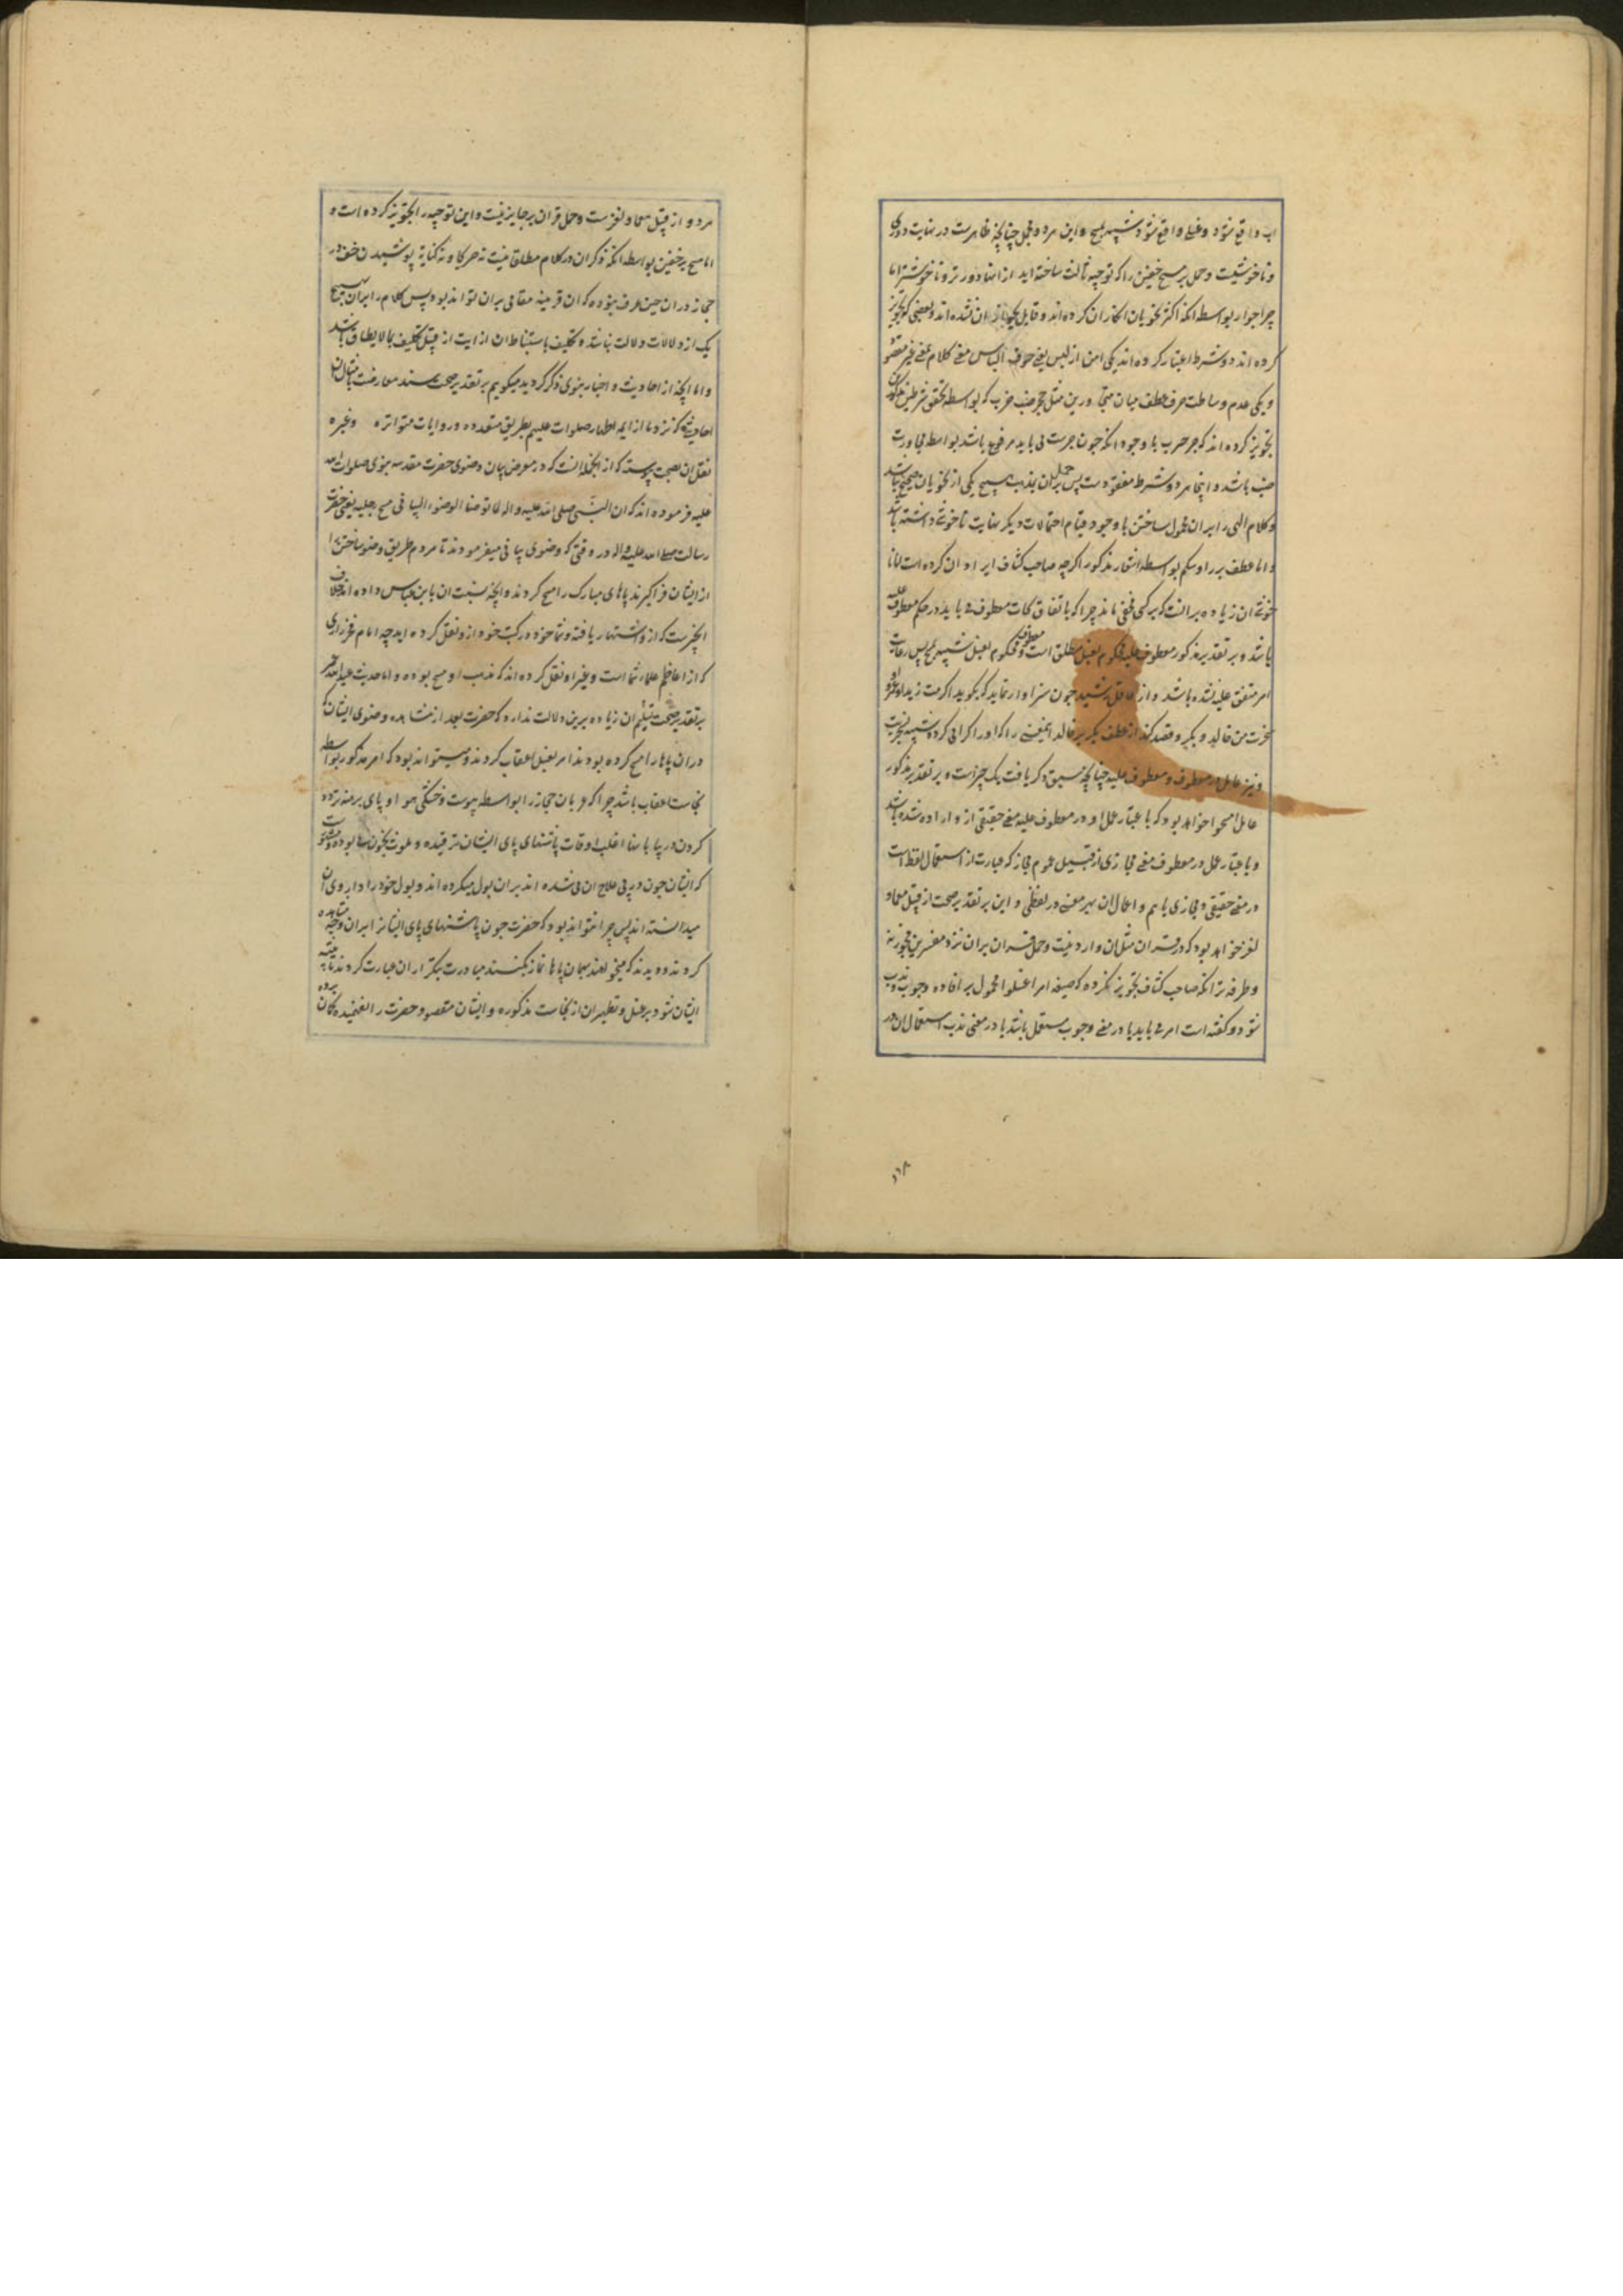 اب واقع شود و غسلی واقع شود شبیه بمسح و این هر دو محمل چنانچه ظاهرست در نهایت دوری
و ناخوشیست و حمل بر مسح خفین را که توجیه ثالث ساخته اید ازانها دورتر و ناخوشتر اما
جر جوار بواسطه انکه اکثر نحویان انکار ان کرده اند و قایل بجواز ان نشده اند و بعضی که تجویز
کرده اند دو شرط اعتبار کرده اند یکی امن از لبس یعنی خوف التباس معنی کلام بمعنی غیر مقصود
و یکی عدم وساطت حرف عطف میان متجاورین مثل جحر ضب خرب که بواسطه تحقق شرطین مذکورین
تجویز کرده اند که جر خرب با وجود انکه چون جحرست می باید مرفوع باشد بواسطه مجاورت
ضب باشد و اینجا هر دو شرط مفقودست پس حمل بران بمذهب هیچ یکی از نحویان صحیح نباشد
و کلام الهی را بران محمول ساختن با وجود قیام احتمالات دیگر بغایت ناخوشی داشته باشد
و اما عطف بر رؤسکم بواسطه اشعار مذکور اگرچه صاحب کشاف ایراد ان کرده است اما نا
خوشی ان زیاده بر انست که بر کسی مخفی ماند چرا که باتفاق نحات معطوف می باید در حکم معطوف علیه
باشد و بر تقدیر مذکور معطوف علیه محکوم بفعل مطلق است و معطوف محکوم بفعل شبیه بمسح پس رعایت
امر متفق علیه نشده باشد و از عاقل رشید چون سزاوار نماید که بگوید اکرمت زیدا و عمروا و
سخرت من خالد و بکر و قصد کند از عطف بکر بر خالد اینمعنی را که او را اکرامی کرد شبیه بسخریت
و نیز عامل در معطوف و معطوف علیه چنانچه سبق ذکر یافت یک چیزست و بر تقدیر مذکور
عامل امسحوا خواهد بود که باعتبار عمل او در معطوف علیه معنی حقیقی از و اراده شده باشد
و باعتبار عمل در معطوف معنی مجازی از قبیل عموم مجاز که عبارت از استعمال لفظ است
در معنی حقیقی و مجازی باهم و اعمال ان بهر معنی در لفظی و این بر تقدیر صحت از قبیل معما و
لغز خواهد بود که در قران مثل ان وارد نیست و حمل قران بران نزد مفسرین مجوز نه
و طرفه تر انکه صاحب کشاف تجویز نکرده که صیغه امر اغسلوا محمول بر افاده وجوب و ندب
شود و گفته است امر می باید یا در معنی وجوب مستعمل باشد یا در معنی ندب استعمال ان در
هر دو از قبیل معما و لغزست و حمل قران بر جایز نیست و این توجیه را تجویز کرده است و
اما مسح بر خفین بواسطه انکه ذکر ان در کلام مطلقا نیست نه صریحا و نه کنایة پوشیدن خف در
حجاز دران حین عرف نبوده که ان قرینه مقامی بران تواند بود پس کلام را بران بهیچ
یک از دلالات دلالت نباشد و تکلیف باستنباط ان از ایت از قبیل تکلیف بما لا یطاق باشد
و اما انچه از احادیث و اخبار نبوی ذکر کردید میگویم بر تقدیر صحت سند معارضست بامثال ان
احادیثی که نزد ما از ایمه اطهار صلوات علیهم بطریق متعدده و روایات متواتره و غیره
نقل ان بصحت پیوسته که از انجمله انست که در معرض بیان وضوی حضرت مقدسه نبوی صلوات الله
علیه فرموده اند که ان النبی صلی الله علیه واله لما توضأ الوضوء البیانی مسح رجلیه یعنی حضرت
رسالت صلی الله علیه واله در وقتی که وضوی بیانی میفرمودند تا مردم طریق وضو ساختن را
از ایشان فراگیرند پاهای مبارک را مسح کردند و انچه نسبت ان بابن عباس داده اند خلاف
انچیزست که ازو اشتهار یافته و شما خود در کتب خود ازو نقل کرده اید چه امام فخر رازی
که از اعاظم علماء شما است و غیر او نقل کرده اند که مذهب او مسح بوده و اما حدیث عبدالله عمر
بر تقدیر صحت و تسلیم ان زیاده برین دلالت ندارد که حضرت بعد از مشاهده وضوی ایشان که
دران پاها را مسح کرده بودند امر بغسل اعقاب کردند و میتواند بود که امر مذکور بواسطه
نجاست اعقاب باشد چرا که عربان حجاز را بواسطه یبوست و خشکی هوا و پای برهنه تردد
کردن در بیابانها اغلب اوقات پاشنهای پای ایشان ترقیده و ملوث بخون می بوده و مشهورست
که ایشان چون در پی علاج ان می شده اند بران بول میکرده اند و بول خود را داروی ان
میدانسته اند پس چرا نتواند بود که حضرت چون پاشنهای پای ایشانرا بران وجه مشاهده
کردند و دیدند که میخواهند بهمان پاها نماز بکنند مبادرت بتکرار ان عبارت کردند تا تنبیه
ایشان شود بر غسل و تطهیر ان از نجاست مذکوره و ایشان مقصود حضرت را نفهمیده گمان برده
۱۱۸